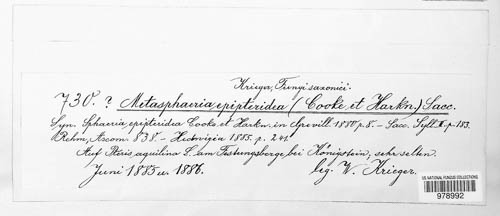 Krieger, Fungi saxonici.
730. ? Metasphaeria epipteridea (Cooke et Harkn.) Sacc.
Syn. Sphaeria epipteridea Cooke et Harkn. in Grevill. 1880 p. 8. – Sacc. Syll. II. p. 183.
Rehm, Ascom. 838. – Hedwigia 1885. p. 241.
Auf Pteris aquilina L. am Festungsberge bei Königstein, sehr selten.
Juni 1885 u. 1886. leg. W. Krieger.
US NATIONAL FUNGUS COLLECTIONS
978992